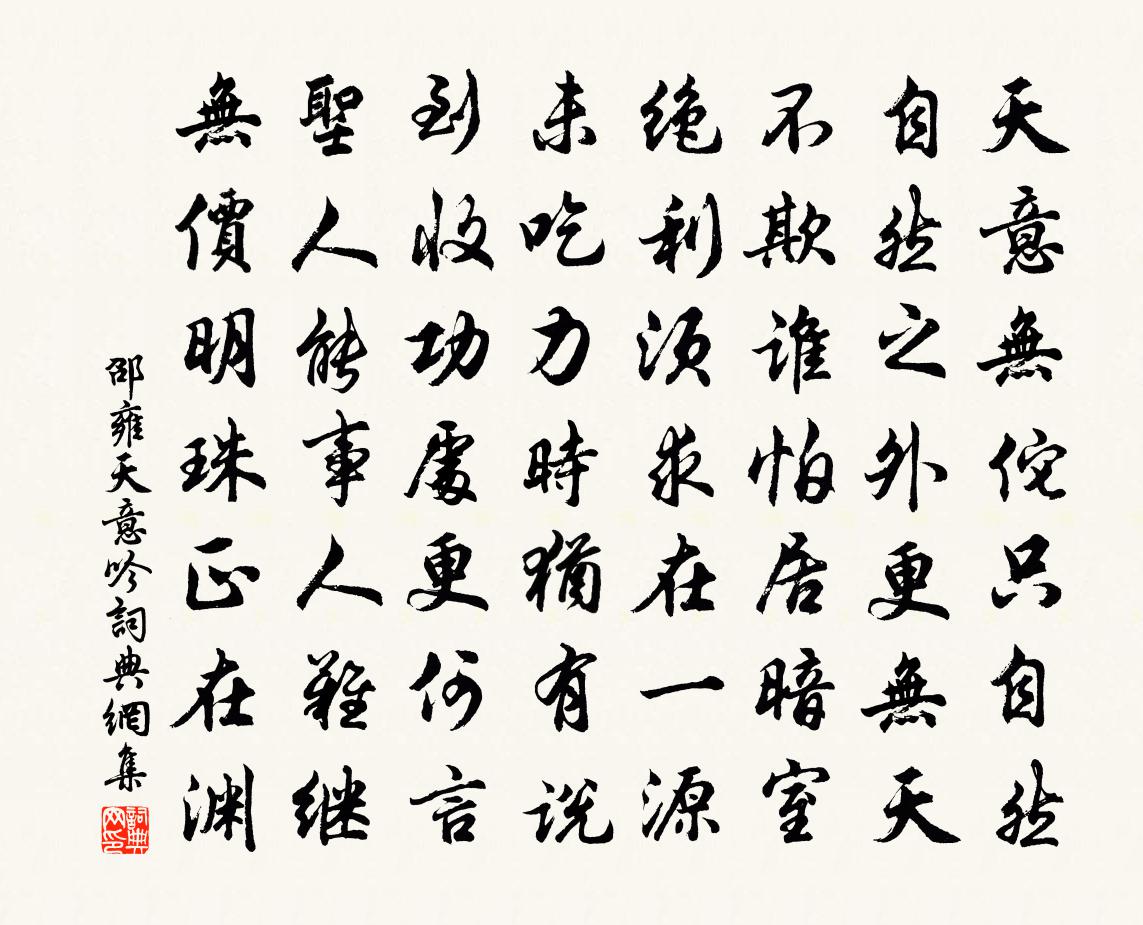 天意無佗只自然
自然之外更無天
不欺誰怕居暗室
絶利須求在一源
未吃力時猶有説
到收功處更何言
聖人能事人難継
無價明珠正在渊
邵雍天意吟詞典網集
詞典网印